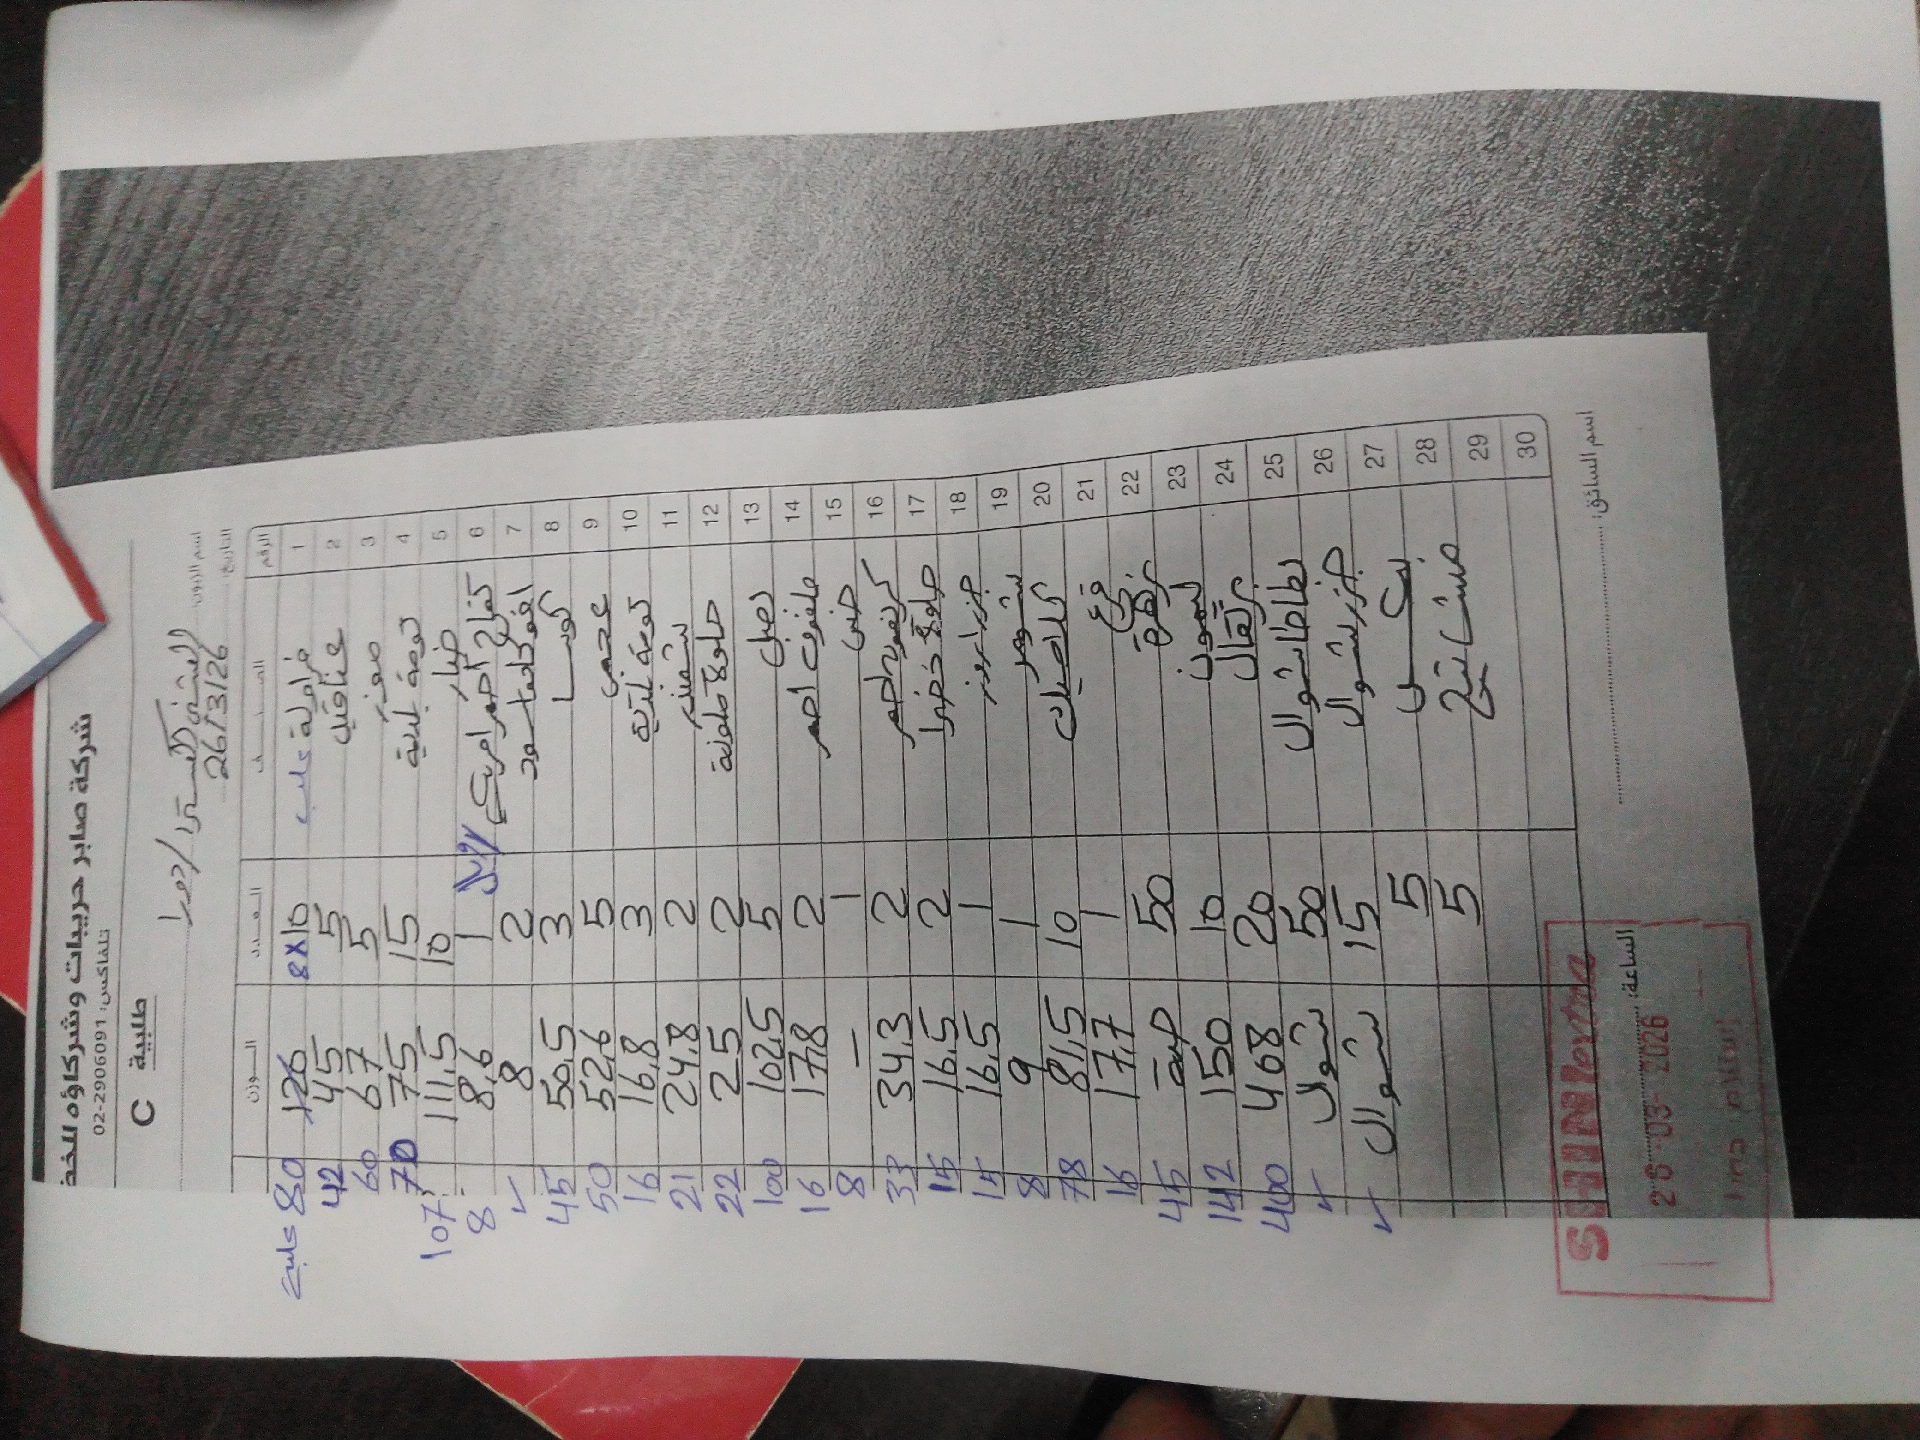 شركة صابر حريبات وشركاؤه للخض
تلفاكس: 02-2906091
طلبية C
اسم الزبون:
التاريخ: 26/3/26
الرقم الصنف العدد الوزن
1 فراولة علب 8x10 126 80 علبة
2 عناقيد 5 45 42
3 موز 5 67 60
4 بندورة بلدية 15 75 70
5 خيار 10 111,5 107
6 تفاح اخضر امريكي 1 8,6 8
7 افوكادو اسود 2 8 ✓
8 كوسا 3 50,5 45
9 عجمي 5 52,6 50
10 3 16,8 16
11 شمندر 2 24,8 21
12 حلوة ملونة 2 25 22
13 بصل 5 102,5 100
14 ملفوف احمر 2 17,8 16
15 خس 1 — 8
16 احمر 2 34,3 33
17 حلوة خضرا 2 16,5 15
18 جزر 1 16,5 15
19 شومر 1 9 8
20 كلمنتينا 10 81,5 78
21 قرع 1 17,7 16
22 50 45
23 ليمون 10 150 142
24 برتقال 20 468 400
25 بطاطا شوال 50 شوال ✓
26 جزر شوال 15 شوال ✓
27 5
28 5
29
30
اسم السائق:
الساعة:
26-03-2026